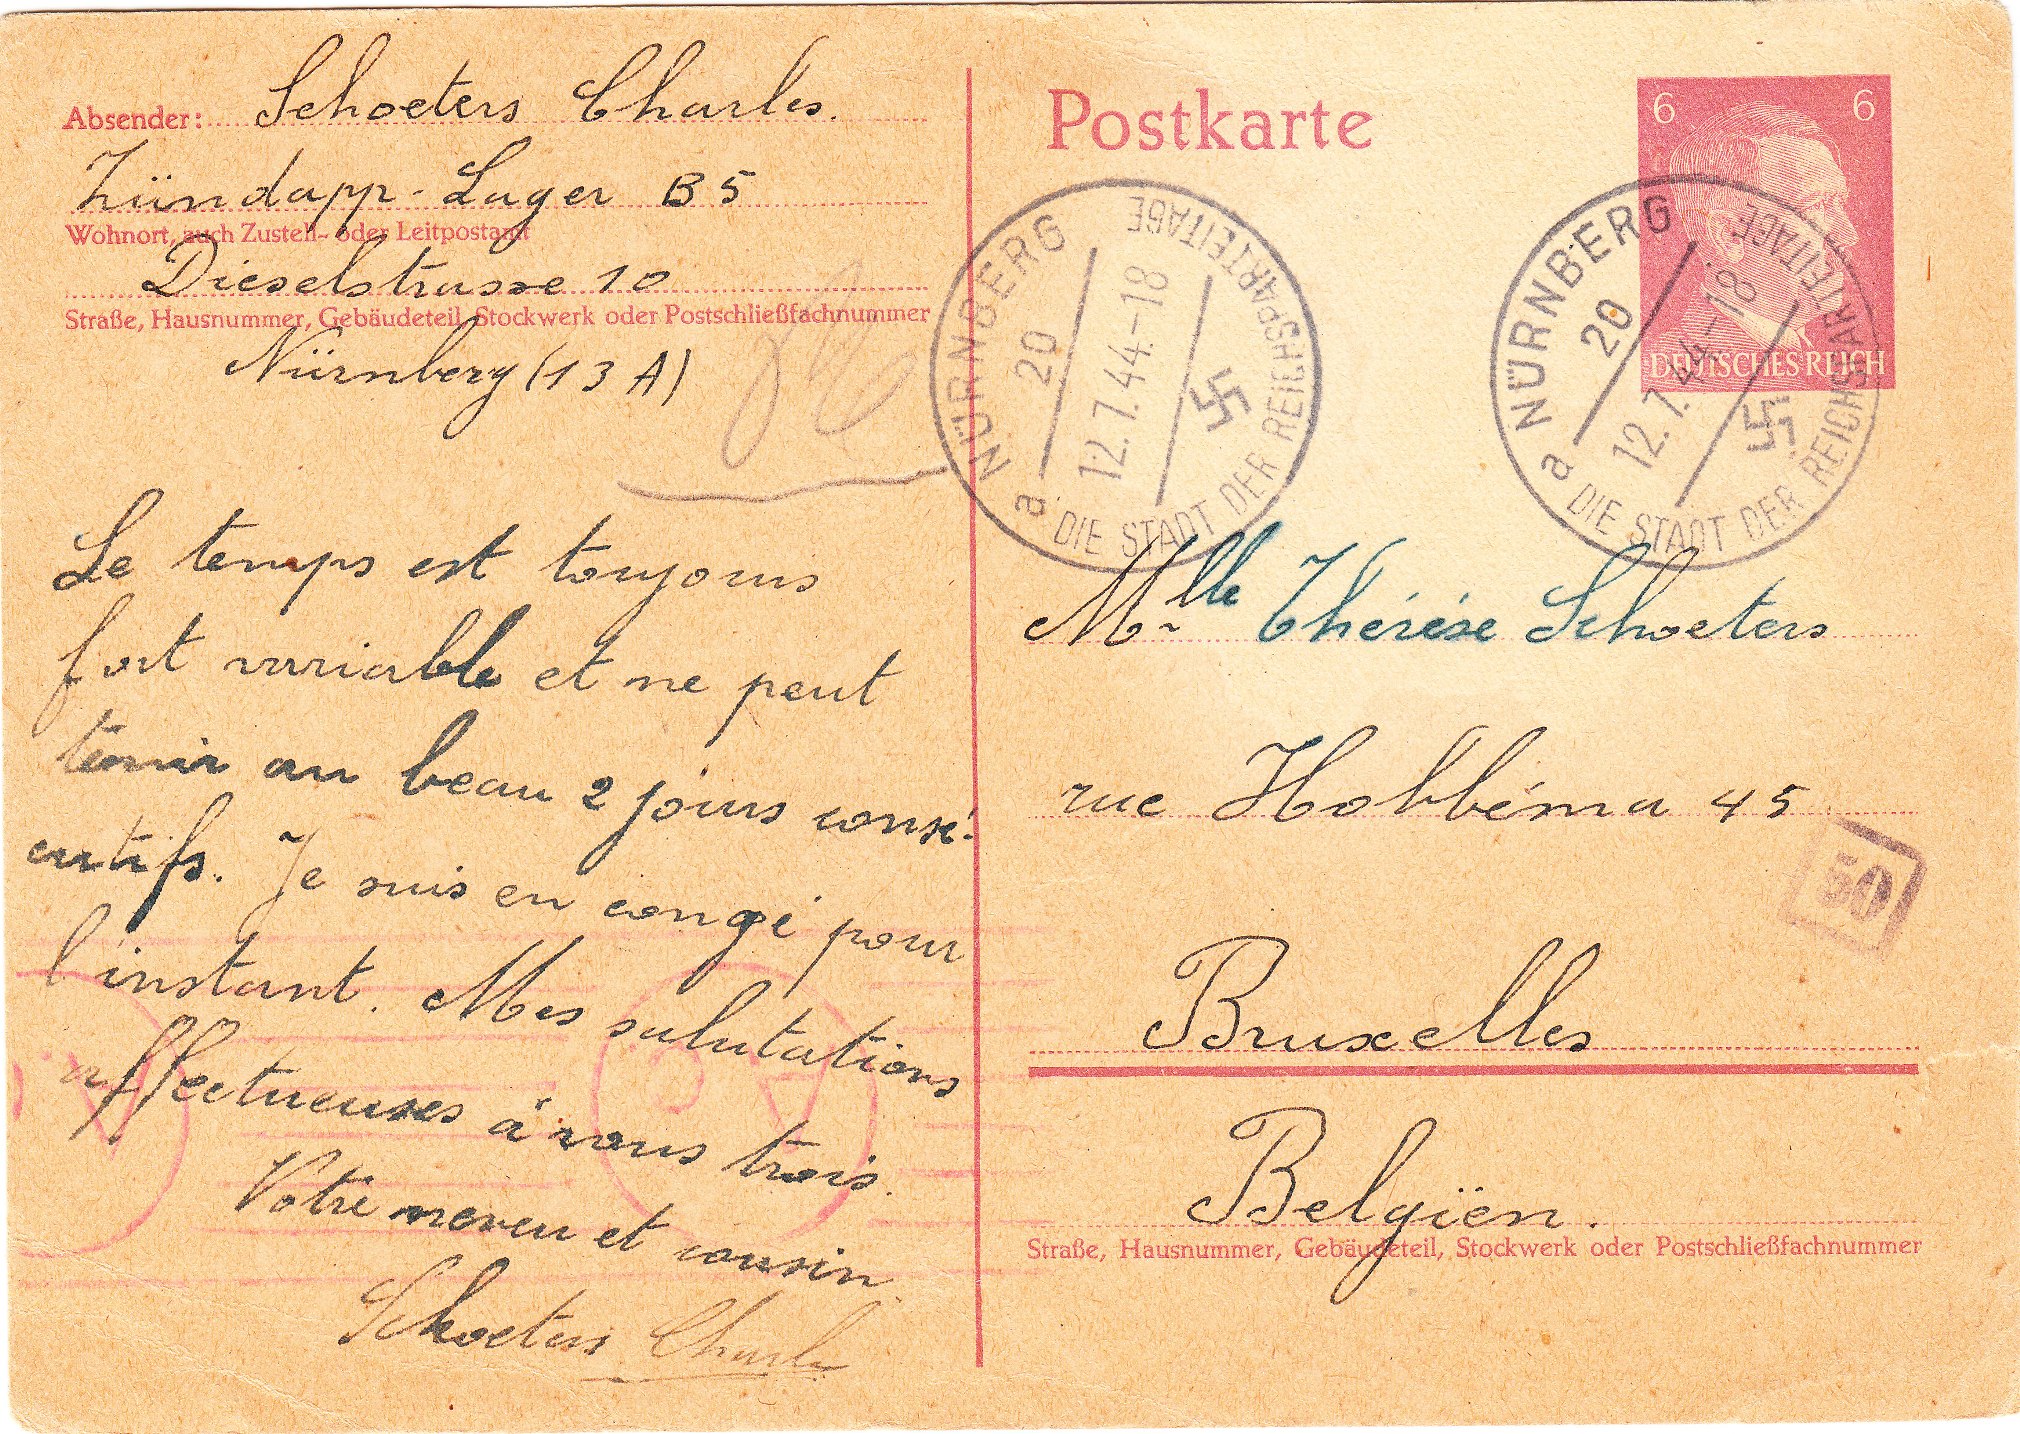 Absender: Schoeters Charles.
Zündapp-Lager B5
Wohnort, auch Zustell- oder Leitpostamt
Dieselstrasse 10
Straße, Hausnummer, Gebäudeteil, Stockwerk oder Postschließfachnummer
Nürnberg (13A)
Le temps est toujours
fort variable et ne peut
tenir au beau 2 jours consé-
cutifs. Je suis en congé pour
l'instant. Mes salutations
affectueuses à vous trois.
Votre neveu et cousin
Schoeters Charles
Postkarte
6 6
DEUTSCHES REICH
NÜRNBERG
20
12.7.44.-18
a DIE STADT DER REICHSPARTEITAGE
NÜRNBERG
20
12.7.44.-18
a DIE STADT DER REICHSPARTEITAGE
Mlle Thérèse Schoeters
rue Hobbéma 45
50
Bruxelles
Belgiën.
Straße, Hausnummer, Gebäudeteil, Stockwerk oder Postschließfachnummer